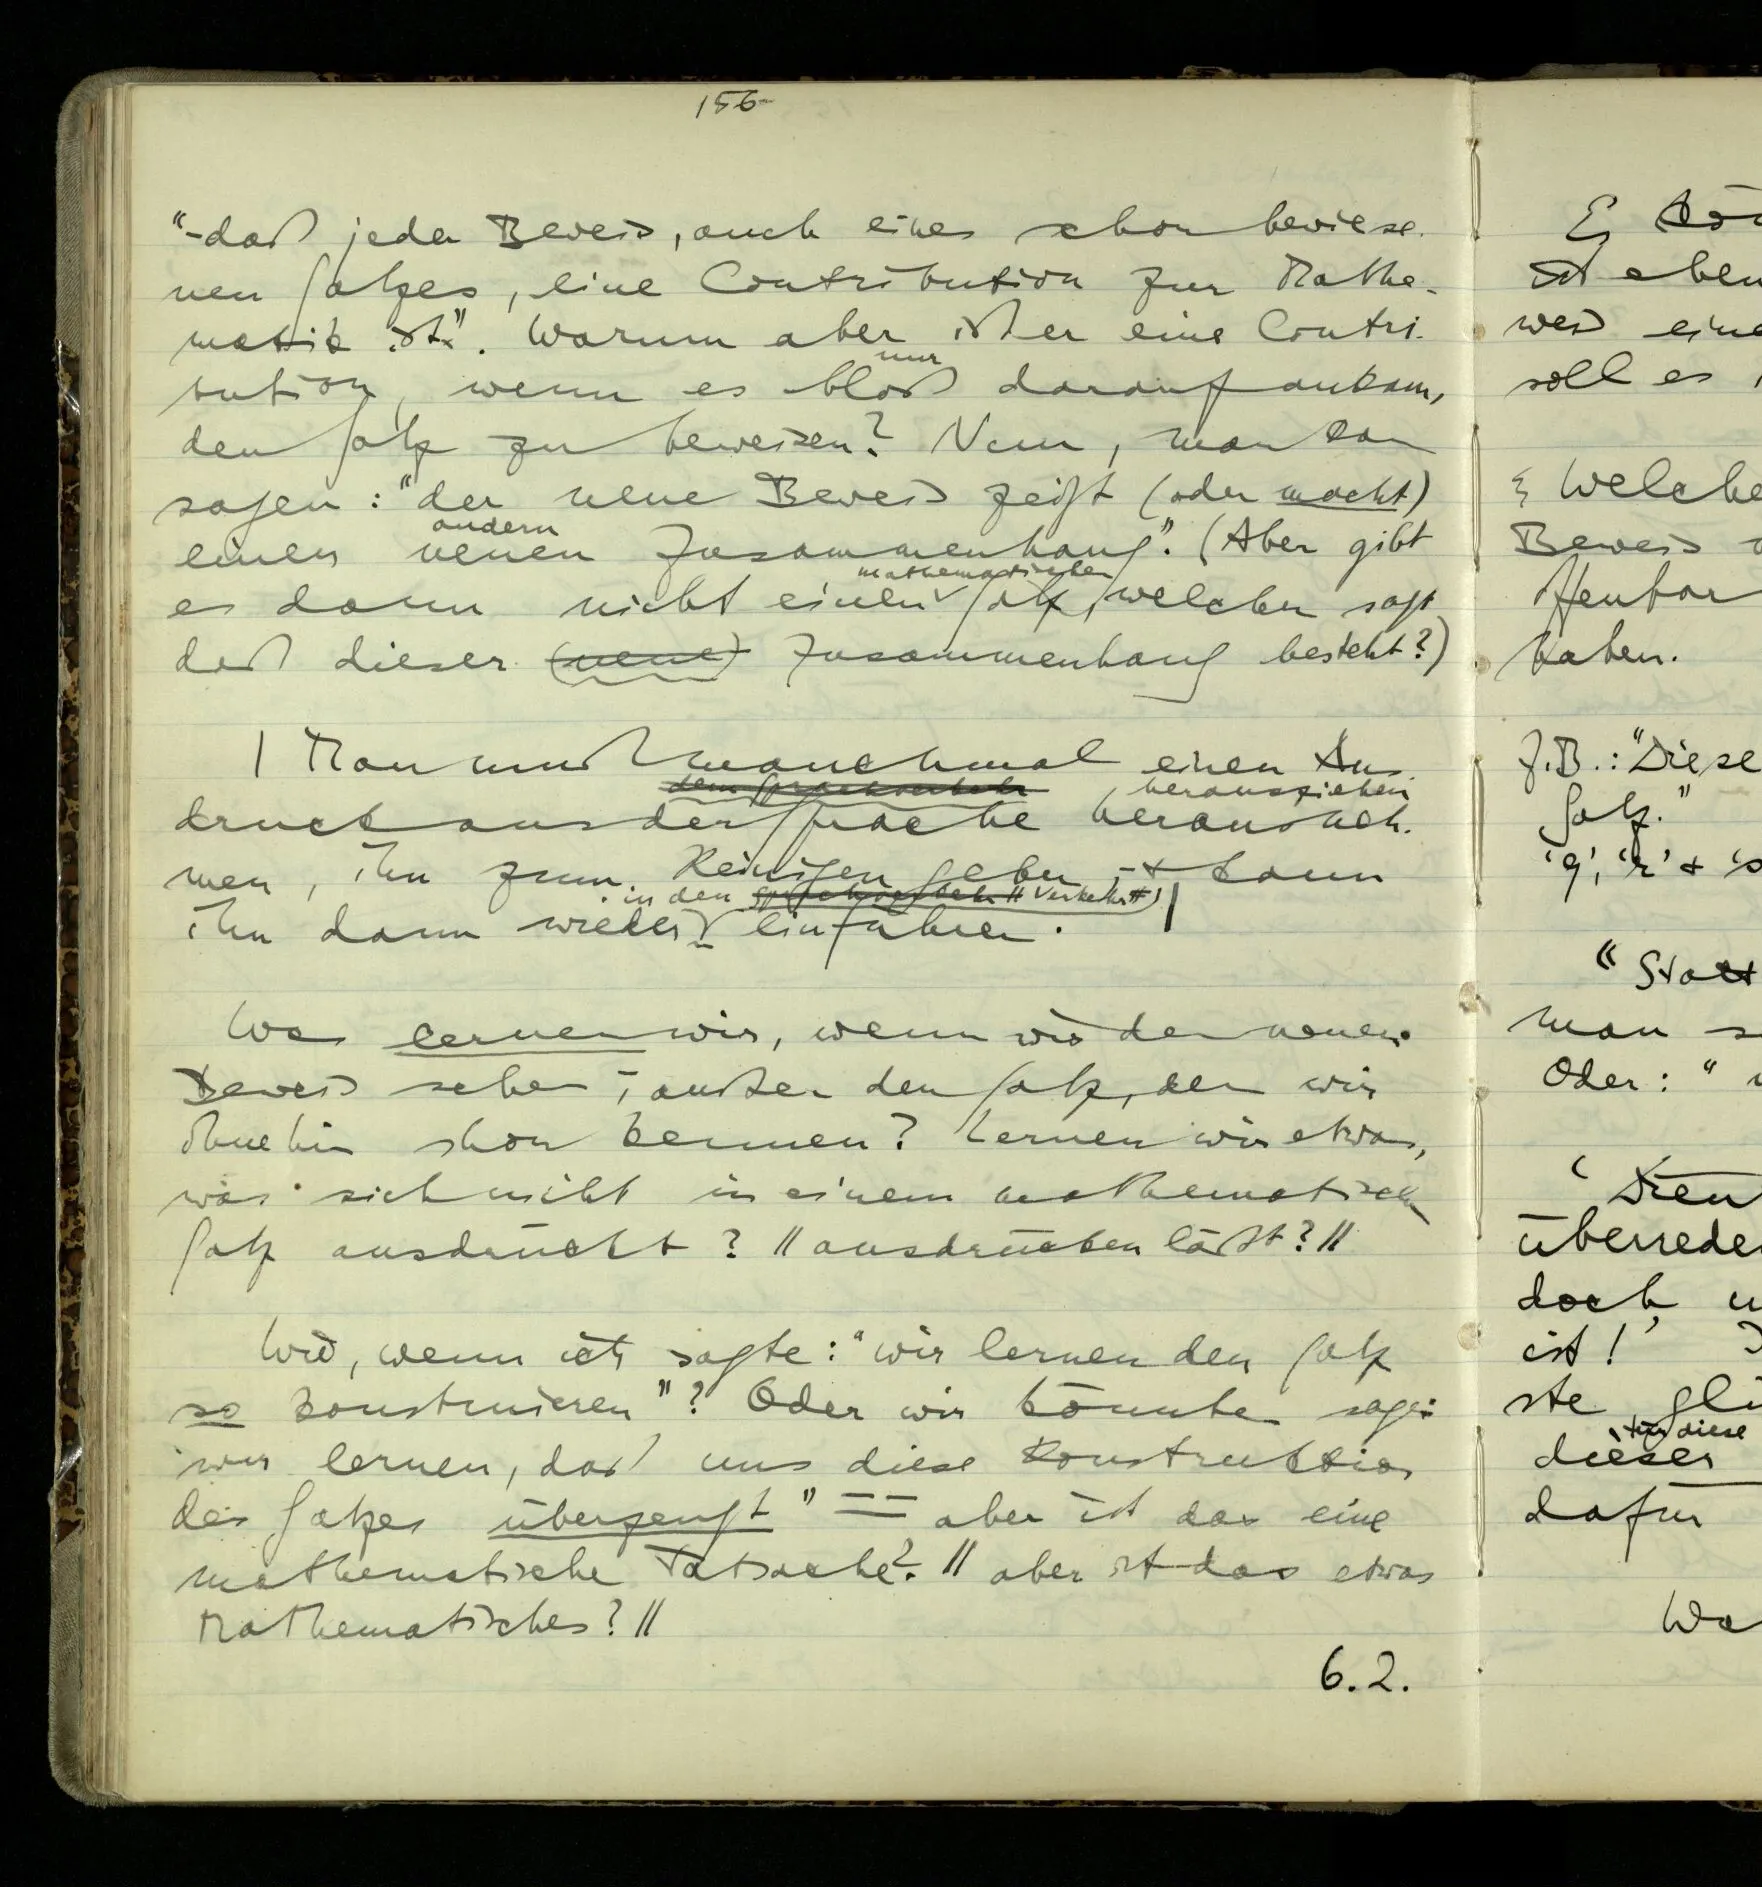 156
"–daß jeder Beweis, auch eines schon bewiese-
nen Satzes, eine Contribution zur Mathe-
matik ist". Warum aber ist er eine Contri-
nur
bution, wenn es bloß darauf ankam,
den Satz zu beweisen? Nun, man kan
sagen: "der neue Beweis zeigt (oder macht)
andern
einen neuen Zusammenhang". (Aber gibt
mathematischen
es dann nicht einen Satz, welcher sagt
daß dieser (neue) Zusammenhang besteht?)
| Man muß manchmal einen Aus-
herausziehen
druck aus der Sprache herausneh-
men, ihn zum Reinigen geben + kann
in den Verkehr
ihn dann wieder einführen. |
Was lernen wir, wenn wir den neuen
Beweis sehen, außer den Satz, den wir
ohnehin schon kennen? Lernen wir etwas,
was sich nicht in einem mathematischen
Satz ausdrückt? // ausdrücken läßt? //
Wie, wenn ich sagte: "wir lernen den Satz
so konstruieren"? Oder wir könnten sagen:
wir lernen, daß uns diese Konstruktion
des Satzes überzeugt" –– aber ist das eine
mathematische Tatsache? // aber ist das etwas
Mathematisches? //
6.2.
ist eben
weis eine
soll es
Welche
Beweis
haben.
Z.B.: "Diese
Satz."
"Statt
man
Oder: "
überreden
doch,
ist!
für diese
dieser
dafür